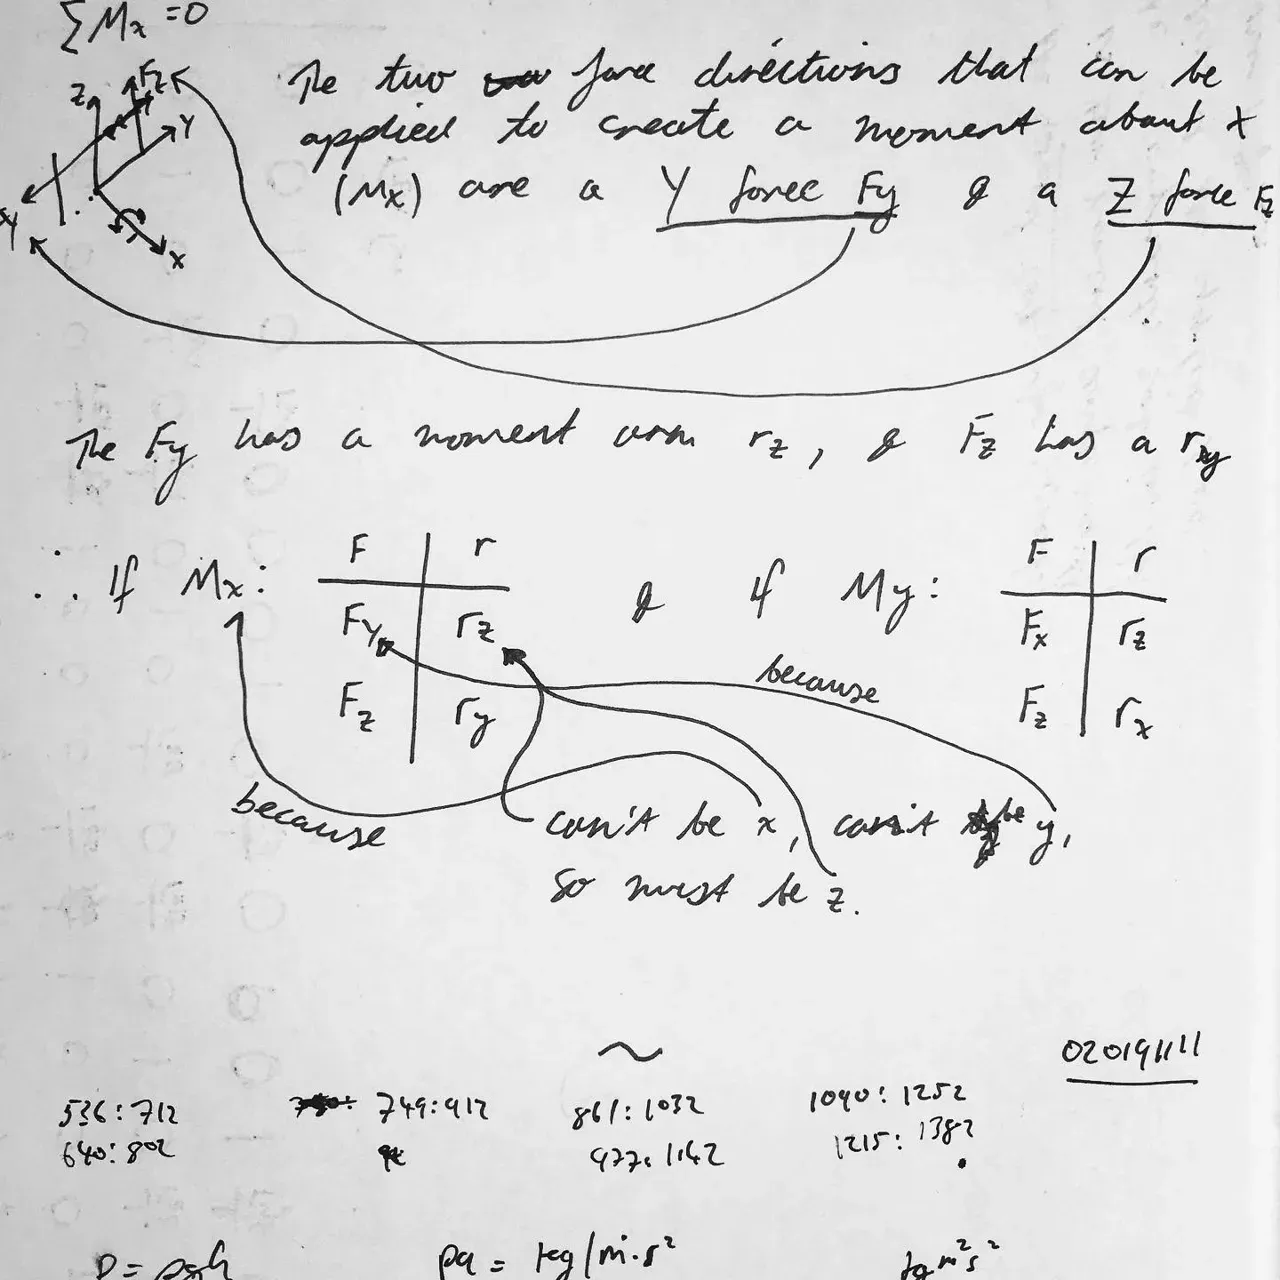 ΣMx = 0
Z Fz Y
The two force directions that can be
applied to create a moment about x
(Mx) are a Y force Fy & a Z force Fz
x
The Fy has a moment arm rz, & Fz has a ry
∴ If Mx: F r & if My: F r
Fy rz Fx rz
Fz ry Fz rx
because
because
can't be x, can't be y,
so must be z.
~
020191111
536:712 749:912 861:1032 1090:1252
640:802 977:1142 1215:1382
P = ρgh pa = kg/m·s² kg m² s²